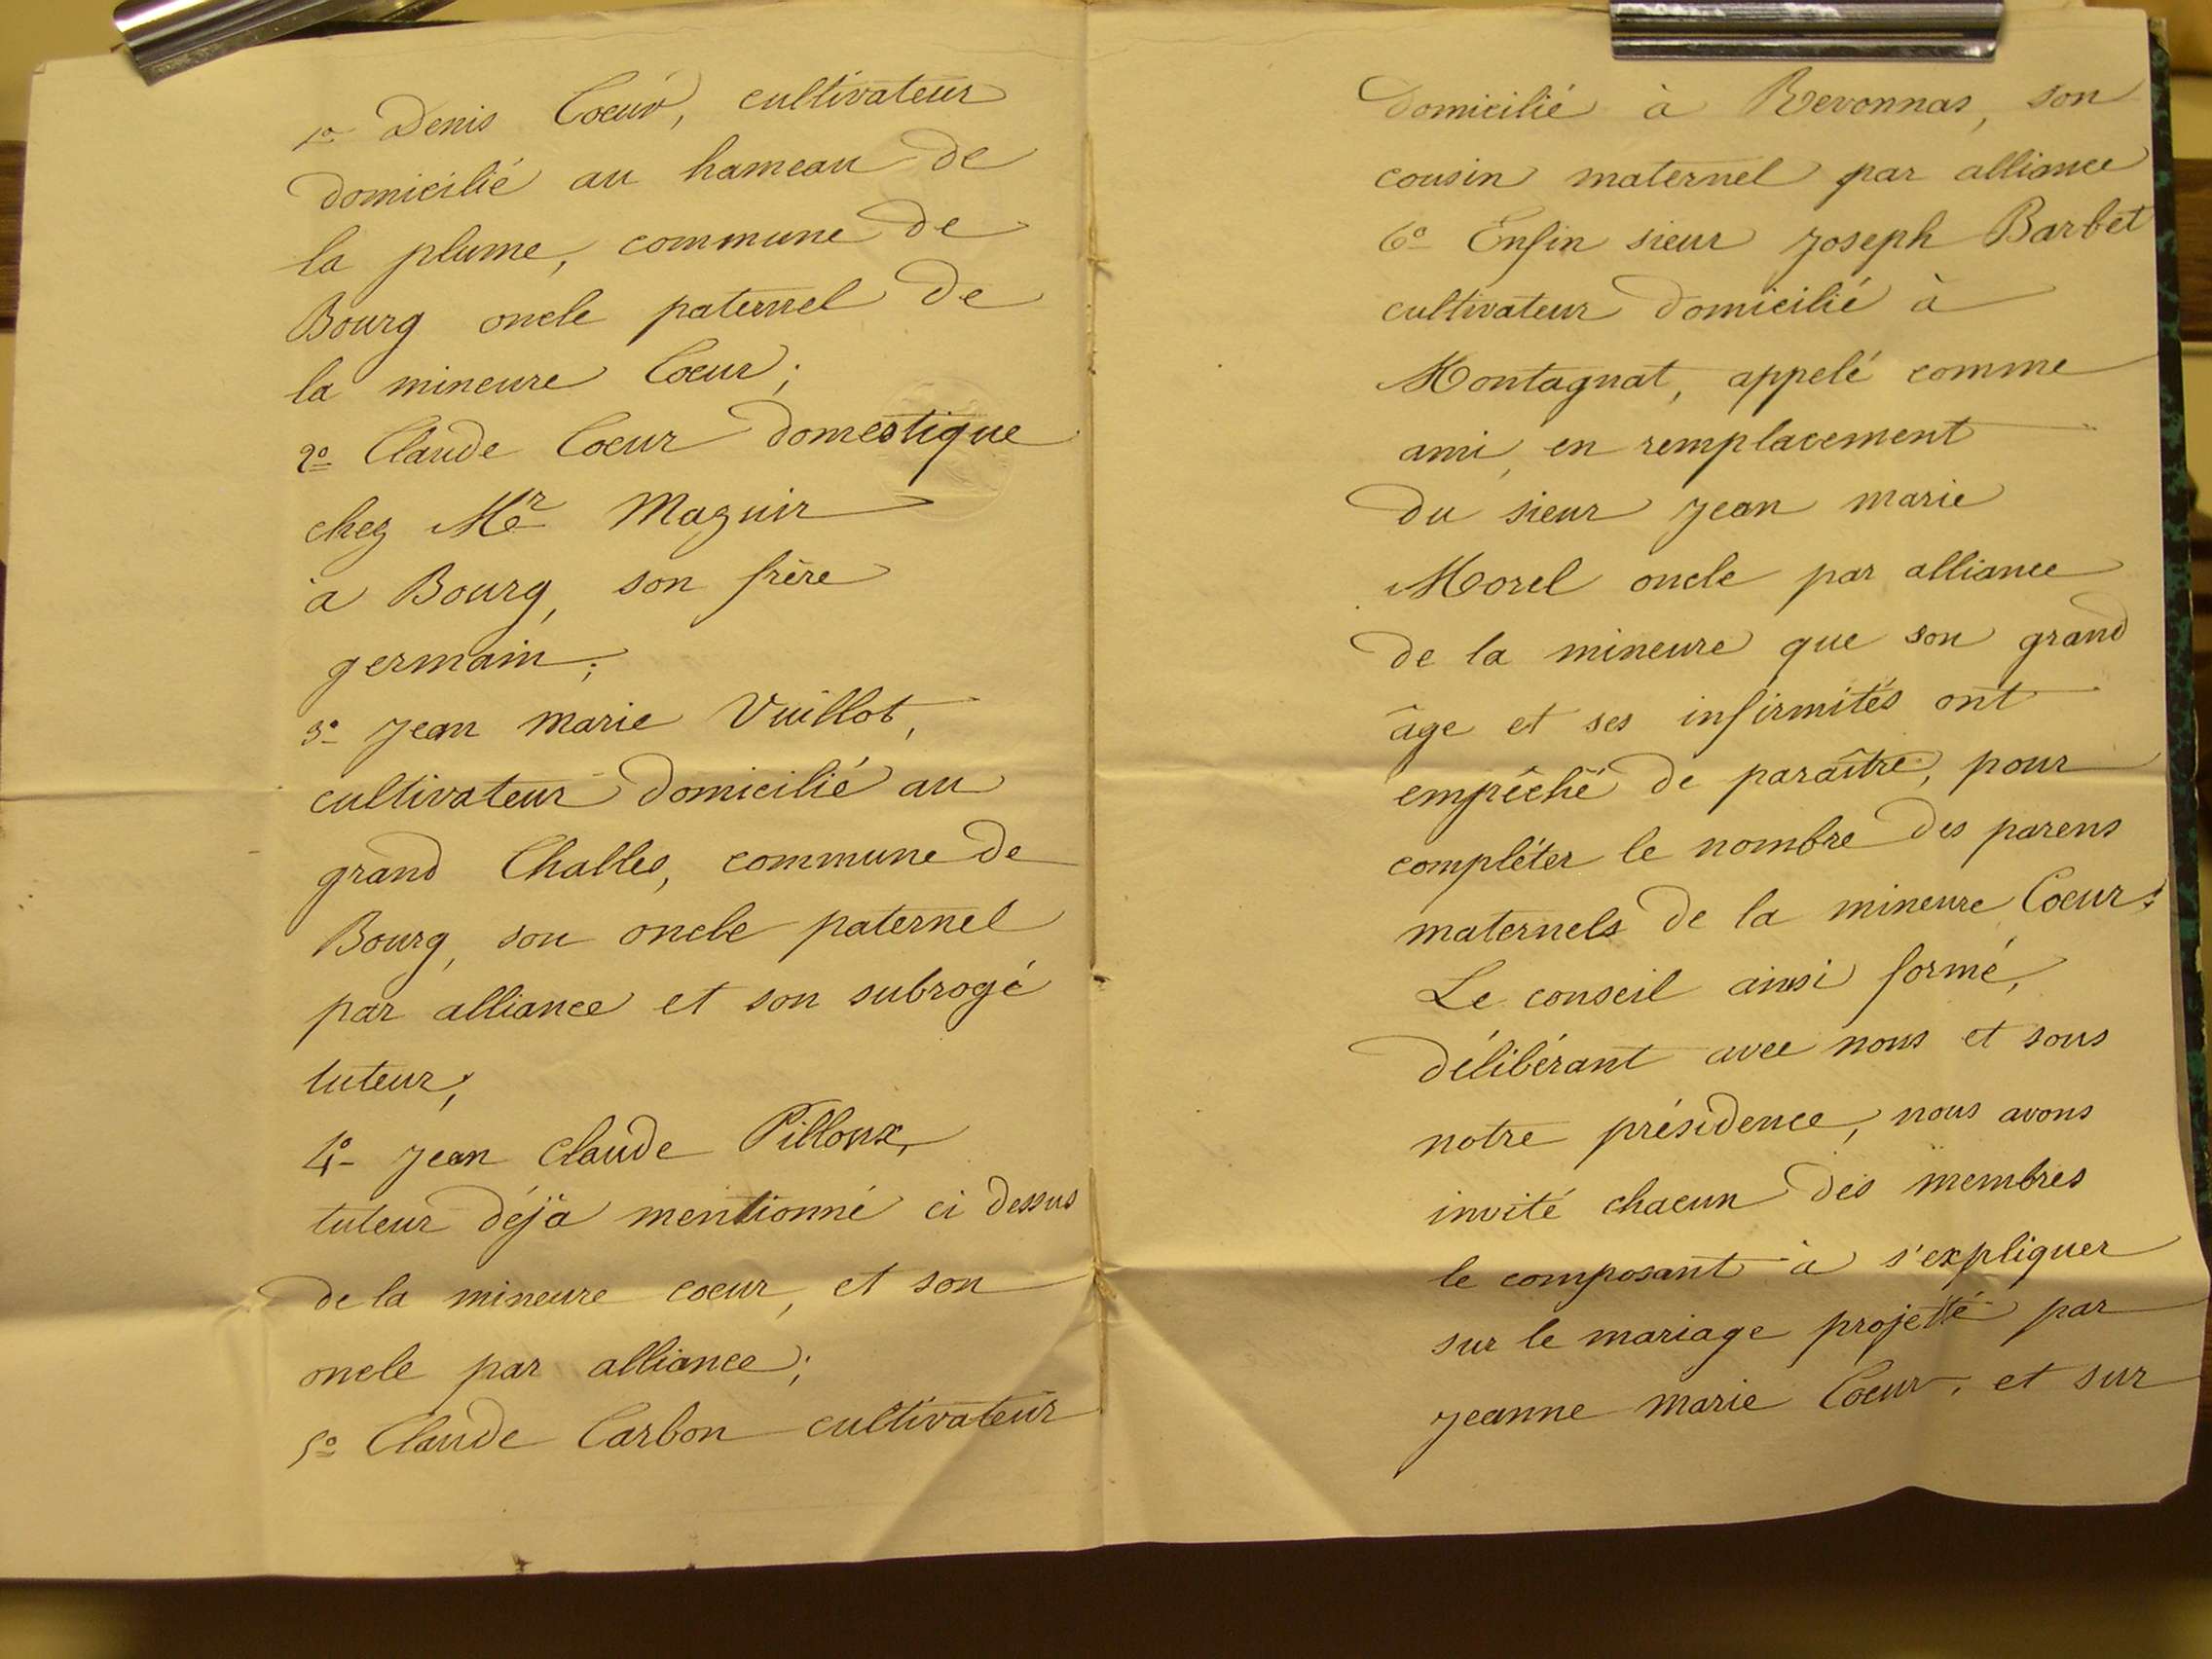 1º Denis Coeur, cultivateur
domicilié au hameau de
la plume, commune de
Bourg oncle paternel de
la mineure Coeur;
2º Claude Coeur domestique
chez Mr
à Bourg, son frère
germain;
3º Jean marie Vuillot,
cultivateur domicilié au
grand Challes, commune de
Bourg, son oncle paternel
par alliance et son subrogé
tuteur;
4º Jean Claude Pilloux,
tuteur déjà mentionné ci dessus
de la mineure coeur, et son
oncle par alliance;
5º Claude Carbon cultivateur
domicilié à Revonnas, son
cousin maternel par alliance
6º Enfin sieur Joseph Barbet
cultivateur domicilié à
Montagnat, appelé comme
ami, en remplacement
du sieur Jean marie
Morel oncle par alliance
de la mineure que son grand
âge et ses infirmités ont
empêché de paraître, pour
compléter le nombre des parens
maternels de la mineure Coeur;
Le conseil ainsi formé,
délibérant avec nous et sous
notre présidence, nous avons
invité chacun des membres
le composant à s'expliquer
sur le mariage projetté par
Jeanne Marie Coeur, et sur